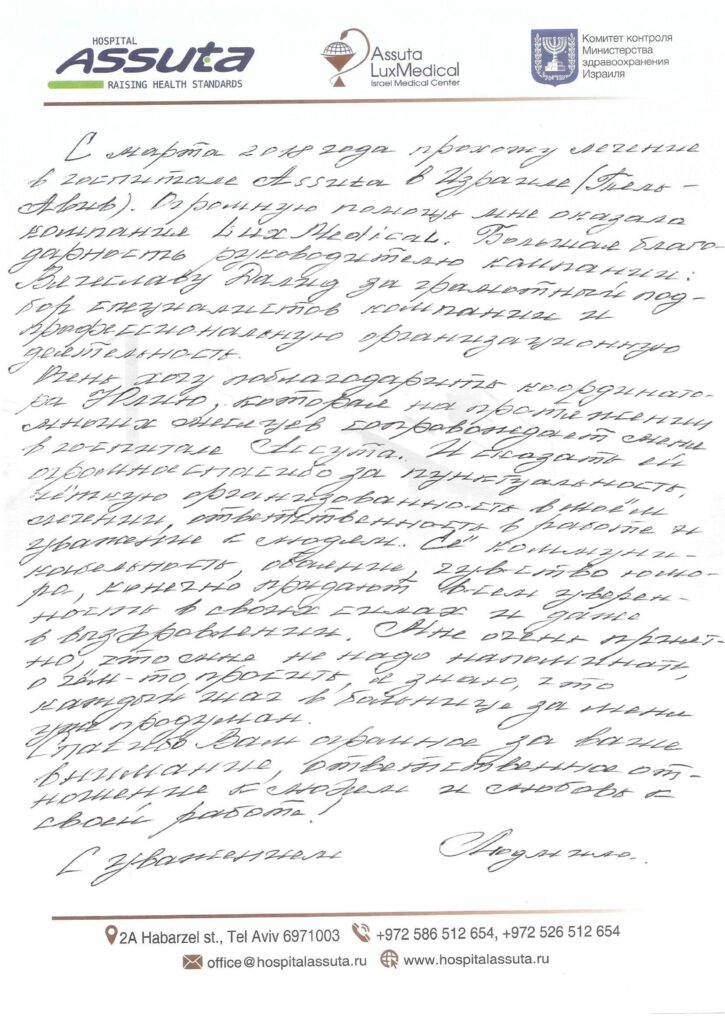 HOSPITAL
Assuta
RAISING HEALTH STANDARDS
Assuta
LuxMedical
Israel Medical Center
Комитет контроля
Министерства
здравоохранения
Израиля
С марта 2018 года прохожу лечение
в госпитале Assuta в Израиле (Тель-
Авив). Огромную помощь мне оказала
компания LuxMedical. Большая благо-
дарность руководителю кампании:
Вячеславу Далид за грамотный под-
бор специалистов компании и
профессиональную организационную
деятельность.
Очень хочу поблагодарить координато-
ра Юлию, которая на протяжении
многих месяцев сопровождает меня
в госпитале Ассута. И сказать ей
огромное спасибо за пунктуальность,
чёткую организованность в моём
лечении, ответственность в работе и
уважение к людям. Её коммуни-
кабельность, обаяние, чувство юмо-
ра, конечно придают всем уверен-
ность в своих силах и даже
в выздоровлении. Мне очень прият-
но, что мне не надо напоминать,
о чём-то просить, я знаю, что
каждый шаг в больнице за меня
уже продуман.
Спасибо Вам огромное за ваше
внимание, ответственное от-
ношение к людям и любовь к
своей работе!
С уважением Людмила.
2A Habarzel st., Tel Aviv 6971003 +972 586 512 654, +972 526 512 654
office@hospitalassuta.ru www.hospitalassuta.ru